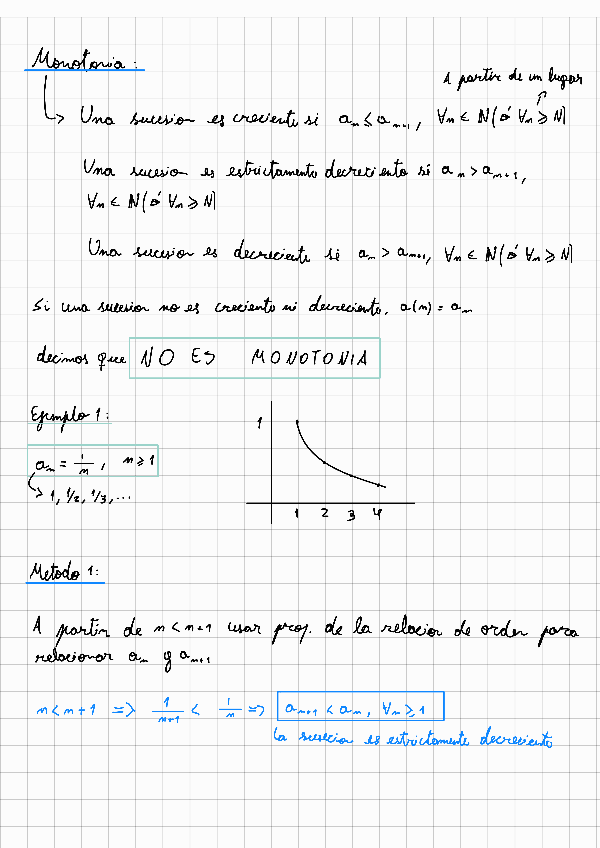 Monotonia:
A partir de un lugar
Una sucesion es creciente si aₙ ≤ aₙ₊₁, ∀n ∈ ℕ (ó ∀n ≥ N)
Una sucesion es estrictamente decreciente si aₙ > aₙ₊₁,
∀n ∈ ℕ (ó ∀n ≥ N)
Una sucesion es decreciente si aₙ > aₙ₊₁, ∀n ∈ ℕ (ó ∀n ≥ N)
Si una sucesion no es creciente ni decreciente, a(n) = aₙ
decimos que NO ES MONOTONIA
Ejemplo 1:
aₙ = 1/n, n ≥ 1
→ 1, 1/2, 1/3, ...
1
1 2 3 4
Metodo 1:
A partir de n < n+1 usar prop. de la relacion de orden para
relacionar aₙ y aₙ₊₁
n < n+1 => 1/(n+1) < 1/n => aₙ₊₁ < aₙ, ∀n ≥ 1
La sucecion es estrictamente decreciente